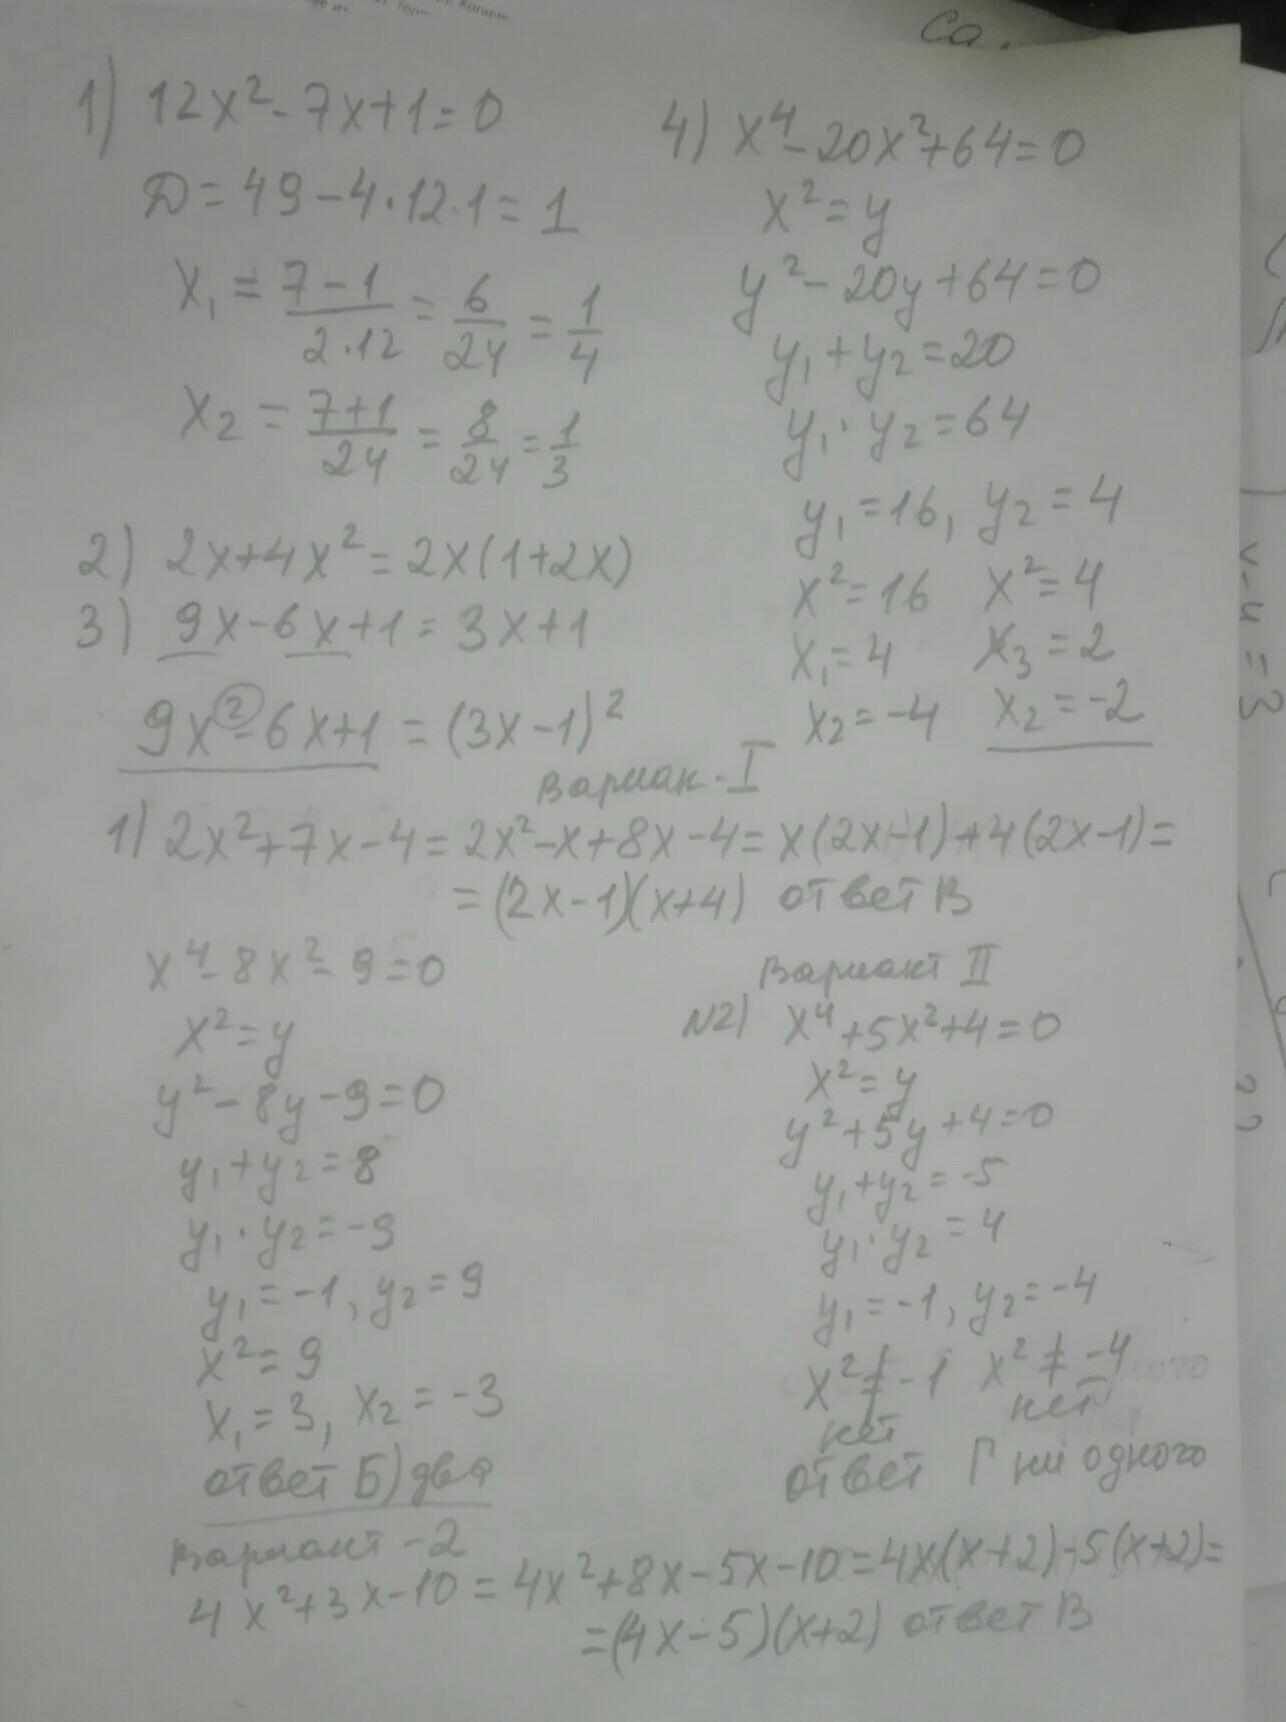 Са.
1) 12x² - 7x + 1 = 0
D = 49 - 4 · 12 · 1 = 1
x₁ = (7 - 1)/(2 · 12) = 6/24 = 1/4
x₂ = (7 + 1)/24 = 8/24 = 1/3
2) 2x + 4x² = 2x(1 + 2x)
3) 9x - 6x + 1 = 3x + 1
9x² - 6x + 1 = (3x - 1)²
4) x⁴ - 20x² + 64 = 0
x² = y
y² - 20y + 64 = 0
y₁ + y₂ = 20
y₁ · y₂ = 64
y₁ = 16, y₂ = 4
x² = 16 x² = 4
x₁ = 4 x₃ = 2
x₂ = -4 x₂ = -2
Вариан - I
1) 2x² + 7x - 4 = 2x² - x + 8x - 4 = x(2x - 1) + 4(2x - 1) =
= (2x - 1)(x + 4) ответ В
x⁴ - 8x² - 9 = 0
x² = y
y² - 8y - 9 = 0
y₁ + y₂ = 8
y₁ · y₂ = -9
y₁ = -1, y₂ = 9
x² = 9
x₁ = 3, x₂ = -3
ответ Б) два
Вариант II
N2) x⁴ + 5x² + 4 = 0
x² = y
y² + 5y + 4 = 0
y₁ + y₂ = -5
y₁ · y₂ = 4
y₁ = -1, y₂ = -4
x² ≠ -1 x² ≠ -4
нет нет
ответ Г ни одного
Вариант - 2
4x² + 3x - 10 = 4x² + 8x - 5x - 10 = 4x(x + 2) - 5(x + 2) =
= (4x - 5)(x + 2) ответ В